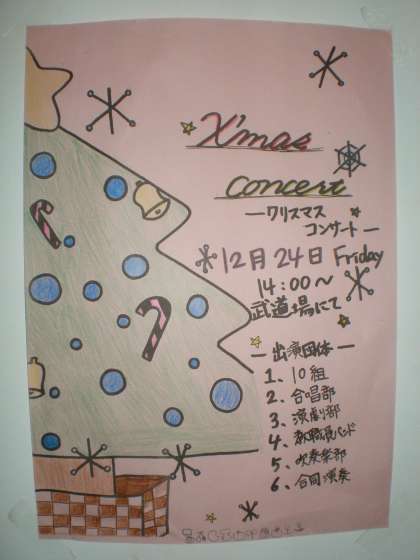 X'mas
concert
ークリスマス
コンサートー
12月24日 Friday
14:00〜
武道場にて
ー出演団体ー
1、10組
2、合唱部
3、演劇部
4、教職員バンド
5、吹奏楽部
6、合同演奏